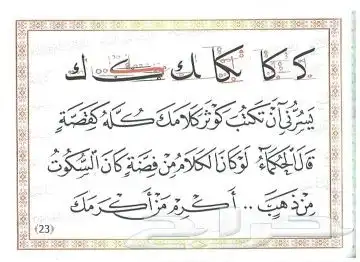 يَسُرُّنِي أَنْ تَكْتُبَ كَوْثَر كَلَامَكَ كُلَّهُ
قَالَ الْحُكَمَاءُ لَوْ كَانَ الْكَلَامُ مِنْ فِضَّةٍ كَانَ السُّكُوتُ
مِنْ ذَهَبٍ .. أَكْرِمْ مَنْ أَكْرَمَكَ
(23)